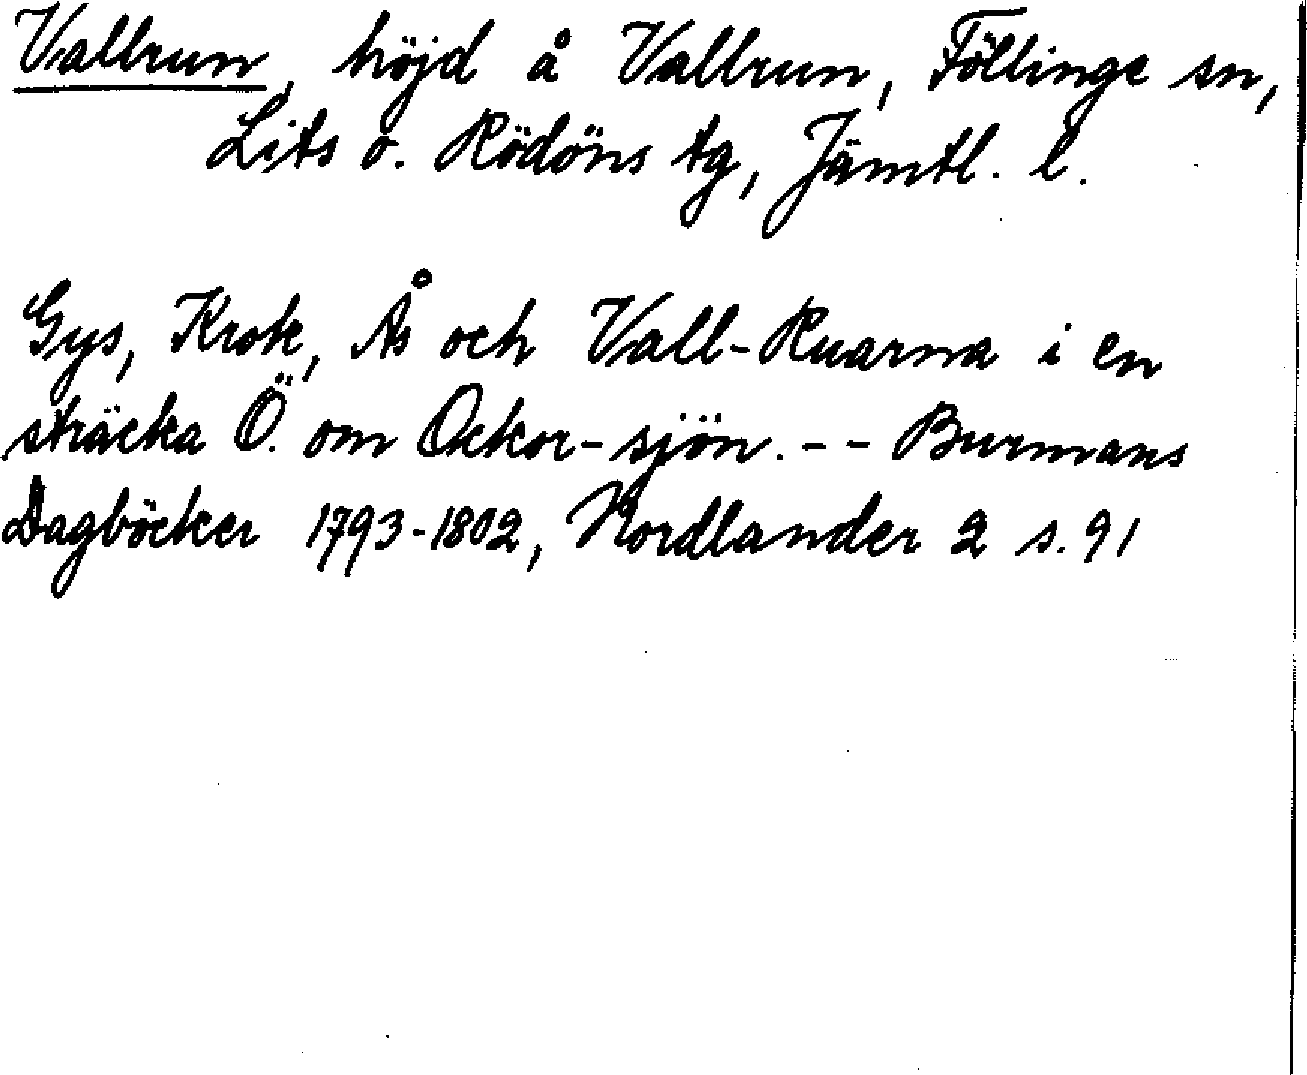 Vallrun, höjd å Vallrun, Föllinge sn,
Lits o. Rödöns tg, Jämtl. l.
Gys, Krok, Ås och Vall-Ruarna i en
sträcka Ö. om Ockor-sjön. - - Burmans
Dagböcker 1793-1802, Nordlander 2 s. 91